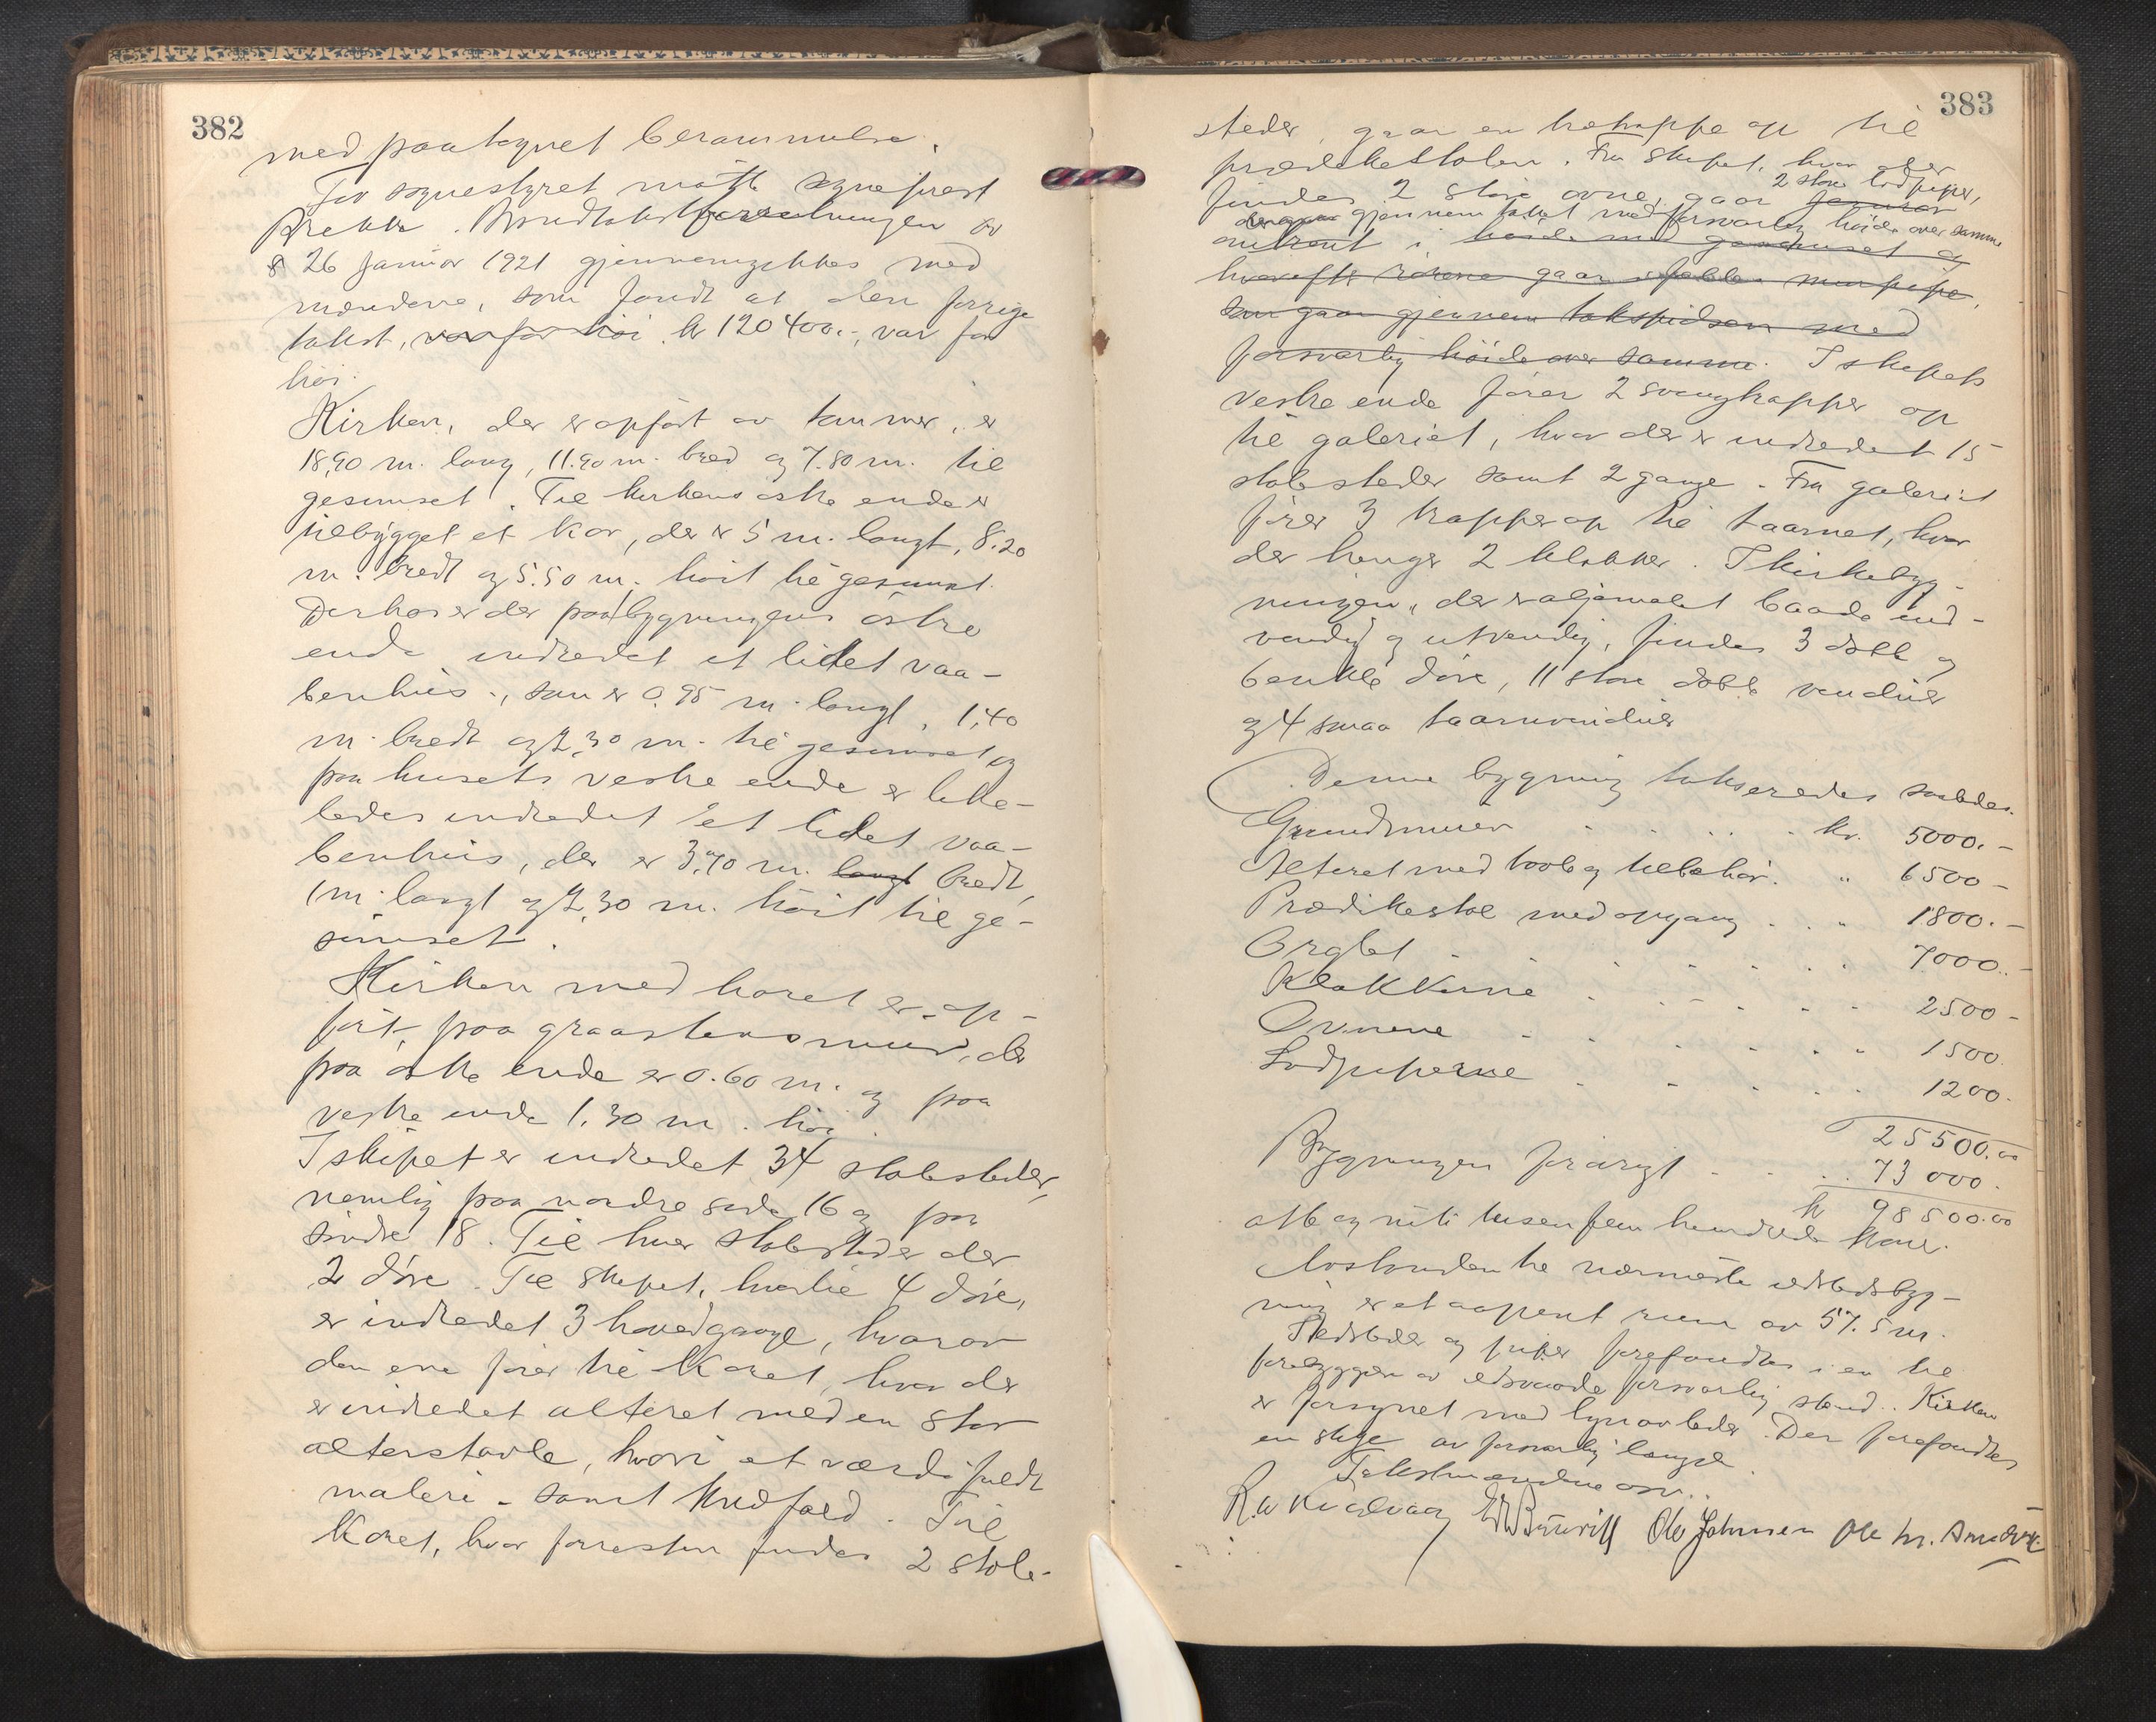 382
med paategnet berammelse.
For sognestyret møtte sogneprest
Brekke. Brandtakstforretningen av
26 januar 1921 gjennemgikkes med
mændene, som fandt at den forrige
takst, var for høi kr 120400.-, var for
høi.
Kirken, der er opført av tømmer, er
18,90 m. lang, 11.90 m. bred og 7.80 m. til
gesimset. Til kirkens østre ende er
tilbygget et kor, der er 5 m. langt, 8.20
m. bredt og 5.50 m. høit til gesimset.
Derhos er der paa bygningens østre
ende indredet et lidet vaa-
benhus, som er 0,95 m. langt, 1,40
m. bredt og 2,30 m. til gesimset og
paa husets vestre ende er like-
ledes indredet et lidet vaa-
benhus, der er 3,70 m. langt bredt,
1 m. langt og 2,30 m. høit til ge-
simset.
Kirken med koret er op-
ført paa graastensmur, der
paa østre ende er 0.60 m. og paa
vestre ende 1,30 m. høi.
I skipet er indredet 34 stolesteder,
nemlig paa nordre side 16 og paa
søndre 18. Til hver stolested er der
2 døre. Til skipet, hvortil 4 døre,
er indredet 3 hovedgange, hvorav
den ene fører til koret, hvor der
er indredet alteret med en stor
altertavle, hvori et værdifuldt
maleri - samt knefald. Til
Koret, hvor forresten findes 2 stole-
383
steder, gaar en trætrappe op til
prædikestolen. Fra skipet, hvor der
findes 2 store ovne, gaar 2 store lodpiper,
gjennem taket med forsvarlig høide over samme
omtrent i høide med gesimset og
hvorefter rørene gaar murpipe,
som gaar gjennem takspidsen med
forsvarlig høide over samme. I skipets
vestre ende fører 2 svingtrapper op
til galeriet, hvor der er indredet 15
stolesteder samt 2 gange. Fra galeriet
fører 3 trapper op til taarnet, hvor
der henger 2 klokker. I kirkebyg-
ningen, der er oljemalet baade ind-
vendig og utvendig, findes 3 dobb og
6 enkle døre, 11 store dobb vinduer
og 4 smaa taarnvinduer
Denne bygning takseredes saaledes.
Grundmuren . . . . . kr. 5000.-
Alteret med tavle og tilbehør. " 6500-
Prædikestol med opgang . . " 1800.-
Orglet . . . . . . 7000.-
Klokkerne . . . . . 2500-
Ovnene . . . . . . 1500.
Lodpiperne . . . . . 1200.
25500.00
Bygningen forøvrigt . . . 73000.
kr 98500.00
otte og nitti tusen fem hundrede kroner.
Avstanden til nærmeste ildstedsbyg-
ning er et aapent rum av 57.5 m.
Ildsteder og piper forefandtes i en til
forebyggen av ildsvaade forsvarlig stand. Kirken
er forsynet med lynavleder. Der forefandtes
en stige av forsvarlig længde.
Takstmændene
Ole Johnsen Ole M.